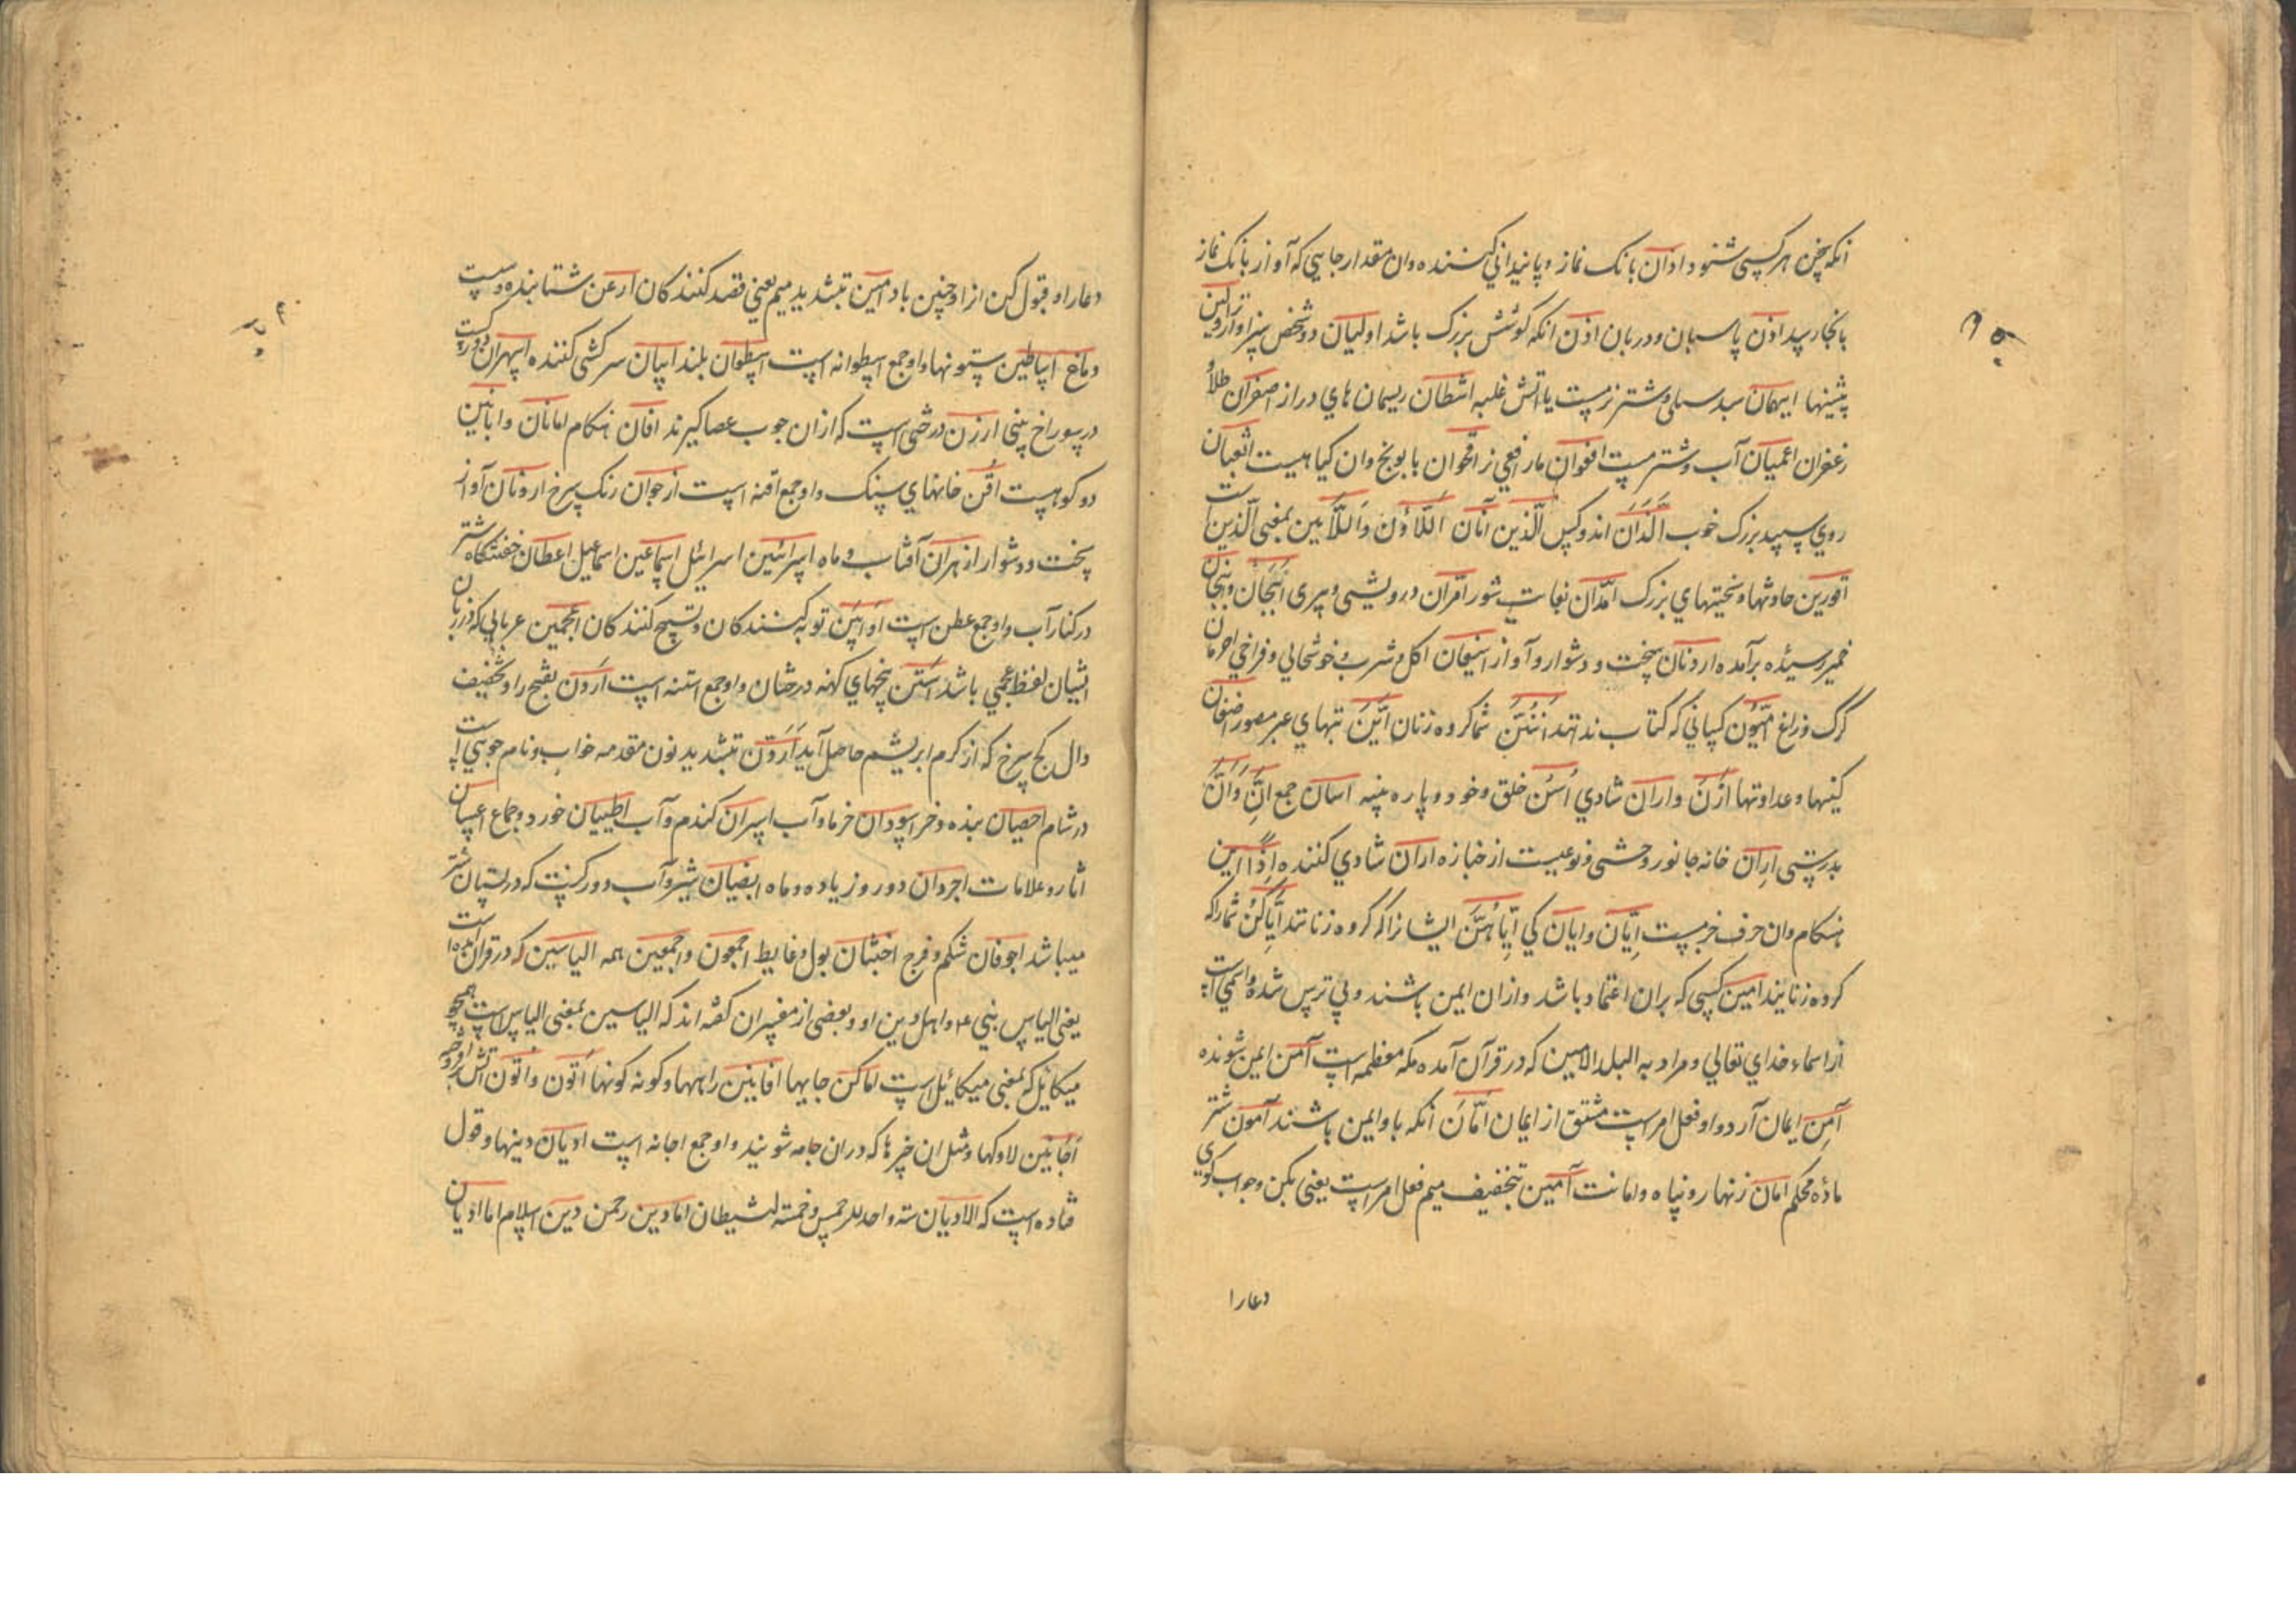 انکه سخن هر کسی شنود اذان بانک نماز و پانیدانی کشنده وان مقدار جایی که آواز بانک نماز
بانجا رسد اذن پاسبان و دربان اذن انکه کوشش بزرک باشد اولیان دو شخص سزاوارتر اولین
پیشینها ایهمان سیل و شتر مست یا آتش غلبه اشطان ریسمان های دراز اصفران طلا و
زعفران اعمیان آب و شتر مست افعوان مار افعی نر اقحوان بابونج وان کیاهیست اثعبان
روی سپید بزرک خوب اللذان اندوکس الذین آنان اللاؤن واللائین بمعنی الذین است
اقورین حادثها و سختیهای بزرک امدان نعات شور امران درویشی و پیری انبجان و نبجان
خمیر رسیده برآمده ارونان سخت و دشوار و آواز اکل و شرب و خوشحالی و فراخی احرمان
کرک و زاغ امیون کسانی که کتاب ندانند انتن شما کروه زنان
کینها و عداوتها ازن واران شادی اسن خلق و خود و پاره پنبه اسان جمع ان وان
بدرستی اران خانه جانور وحشی و نوعیست از خبازه اران شادی کننده اذا این
هنکام وان حرف خبرست ایان وایان کی ایاهن ایشانرا که کروه زنانند ایاکن شما را که
کروه زنانید امین کسی که بران اعتماد باشد وازان ایمن باشند و بی ترس شده واسمی است
از اسماء خدای تعالی و مراد به البلد الامین که در قرآن آمده مکه معظمه است آمن ایمن شونده
آمن ایمان آرد واو فعل امرست مشتق از ایمان امان انکه باو ایمن باشند آمون شتر
ماده محکم امان زنهار و پناه و امانت آمین بتخفیف میم فعل امرست یعنی بکن وجواب کوی
دعارا
دعارا و قبول کن از او چنین باد امین بتشدید میم یعنی قصد کنندکان ارعن شتابنده و سست
دماغ اساطین ستونها واو جمع اسطوانه است اسطوان بلند ایبان سرکشی کننده اسهران دو رکست
در سوراخ بینی ارزن درختی است که ازان چوب عصا کیرند افان هنکام امانان وابانین
دو کوهست اقن خانهای سنک واو جمع اقنه است ارجوان رنک سرخ ارونان آواز
سخت و دشوار ازهران آفتاب و ماه اسرائین اسرائیل اسماعین اسماعیل اعطان خفتنکاه شتر
در کنار آب واو جمع عطن است اوابین توبه کنندکان و تسبیح کنندکان اعجمین عربانی که در زبان
ایشان لفظ عجمی باشد استن بیخهای کهنه درختان واو جمع استنه است اردن بفتح را و تخفیف
دال کج سرخ که از کرم ابریشم حاصل آید اردن بتشدید نون مقدمه خواب و نام جویی است
در شام احصیان بنده و خر اسودان خرما و آب اسمران کندم و آب اطیبان خورد و جماع اعسان
آثار و علامات اجردان دو روز یا دو ماه ابیضان شیر و آب و دو رکست که در پستان شتر
میباشد اجوفان شکم و فرج اخبثان بول و غایط اجمعون واجمعین همه الیاسین که در قران آمده است
یعنی الیاس نبی ع و اهل دین او و بعضی از مفسران کفته اند که الیاسین بمعنی الیاس است همچو
میکائیل که بمعنی میکائیل است اماکن جایها افانین راهها و کونه کونها اتون واتون آتش افروخته
اجانین لاوکها و مثل ان چیزها که دران جامه شویند واو جمع اجانه است ادیان دینها و قول
قتاده است که الادیان ستة واحد للرحمن وخمسة للشیطان اما دین رحمن دین اسلام اما ادیان